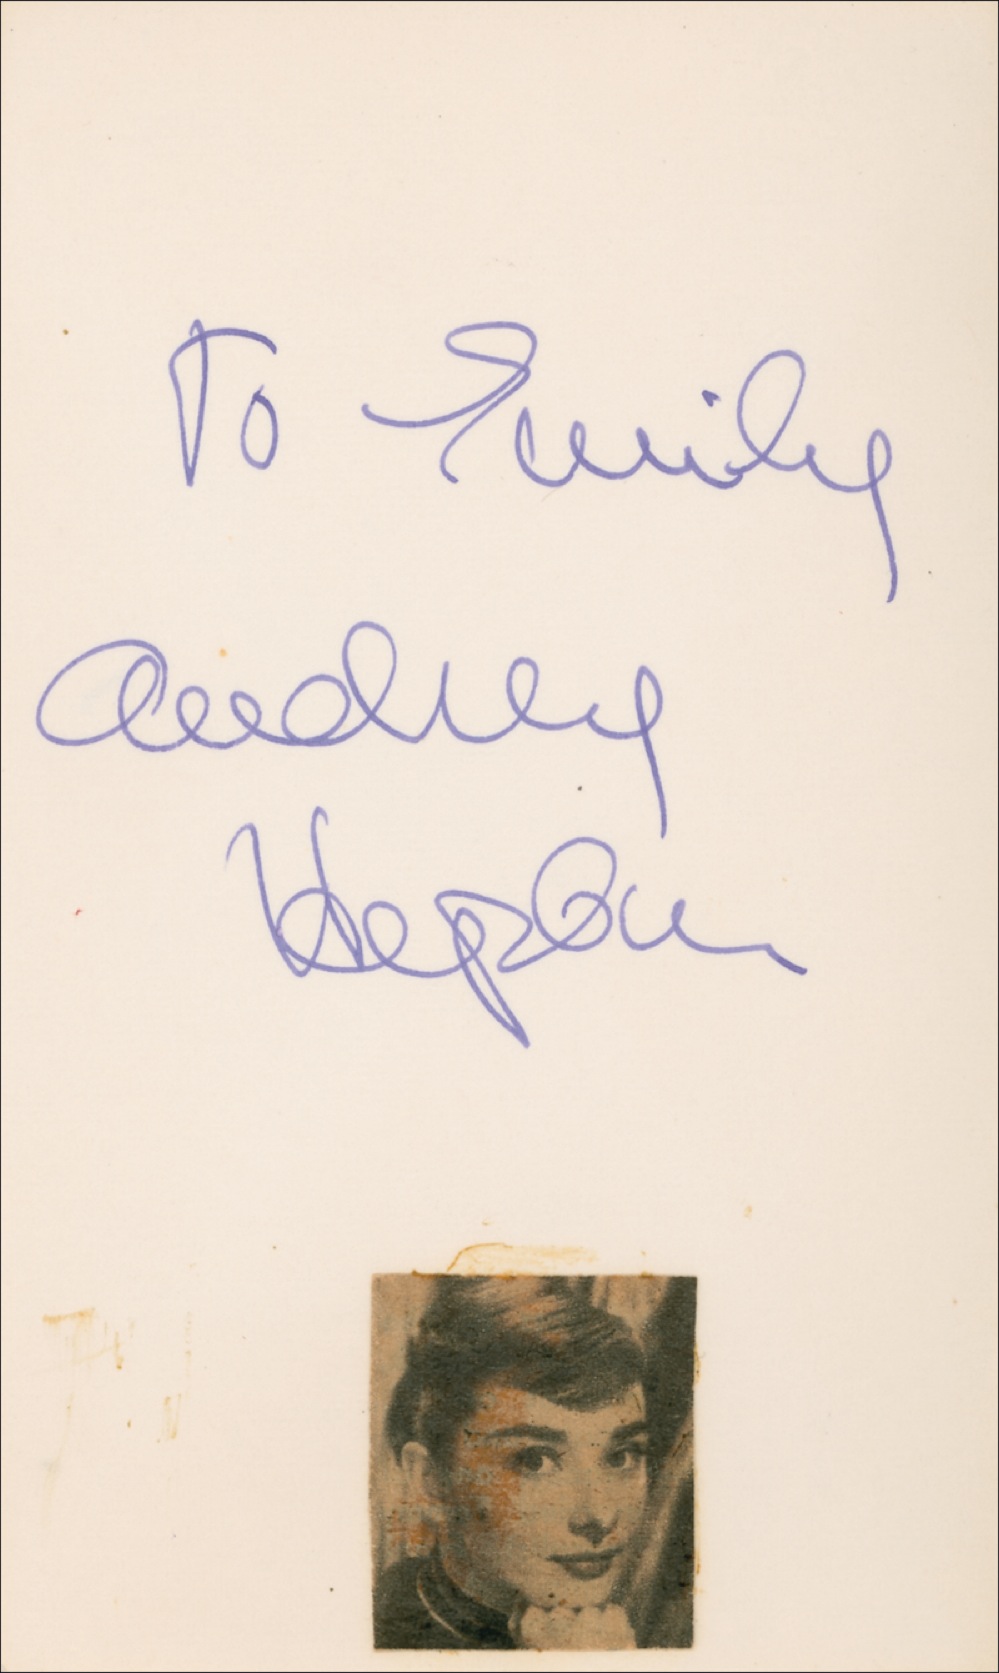 To Emily
Audrey
Hepburn